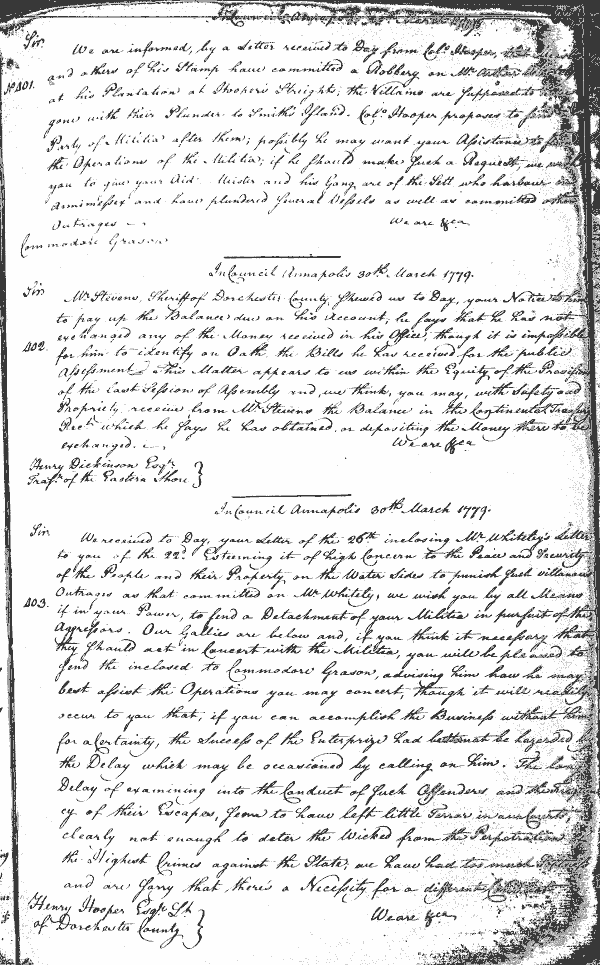 In Council Annapolis 30th March 1779.
Sir
We are informed, by a Letter received to Day from Colo. Hooper, that
No 401. and others of his Stamp have committed a Robbery on Mr. Arthur
at his Plantation at Hooper's Streights; the Villains are supposed to
gone with their Plunder to Smith's Island. Colo. Hooper proposes to send
Party of Militia after them; possibly he may want your Assistance to
the Operations of the Militia; if he should make such a Request, we
you to give your Aid. and his Gang are of the Sett who harbour
Annimessex and have plundered several Vessels as well as committed other
Outrages
We are &ca
Commodore Grason
In Council Annapolis 30th. March 1779.
Sir
Mr. Stevens, Sheriff of Dorchester County, shewed us to Day, your Notice to him
to pay up the Balance due on his Account, he says that he has not
exchanged any of the Money received in his Office, though it is impossible
402. for him to identify on Oath the Bills he has received for the public
Assessment this Matter appears to us within the Equity of the Provision
of the last Session of Assembly and, we think, you may, with Safety and
Propriety receive from Mr. Stevens the Balance in the Continental Treasury
Rects. which he says he has obtained, on depositing the Money there to be
exchanged.
We are &ca
Henry Dickinson Esqr.
Treasr. of the Eastern Shore
In Council Annapolis 30th. March 1779.
Sir
We received to Day, your Letter of the 26th inclosing Mr. Whitely's Letter
to you of the 22d. Esteeming it of high Concern to the Peace and Security
of the People and their Property, on the Water Sides to punish such villanous
Outrages as that committed on Mr. Whitely, we wish you by all Means
403. if in your Power, to send a Detachment of your Militia in pursuit of the
Aggressors. Our Gallies are below and, if you think it necessary that
they should act in Concert with the Militia, you will be pleased to
send the inclosed to Commodore Grason, advising him how he may
best assist the Operations you may concert, though it will readily
occur to you that, if you can accomplish the Business without him
for a Certainty, the Success of the Enterprize had better not be hazarded
the Delay which may be occasioned by calling on him. The long
Delay of examining into the Conduct of such Offenders and the
cy of their Escapes, seem to have left little Terror in our Courts,
clearly not enough to deter the Wicked from the Perpetration
the Highest Crimes against the State; we have had too much
and are sorry that there's a Necessity for a different
We are &ca
Henry Hooper Esqr. Lt.
of Dorchester County